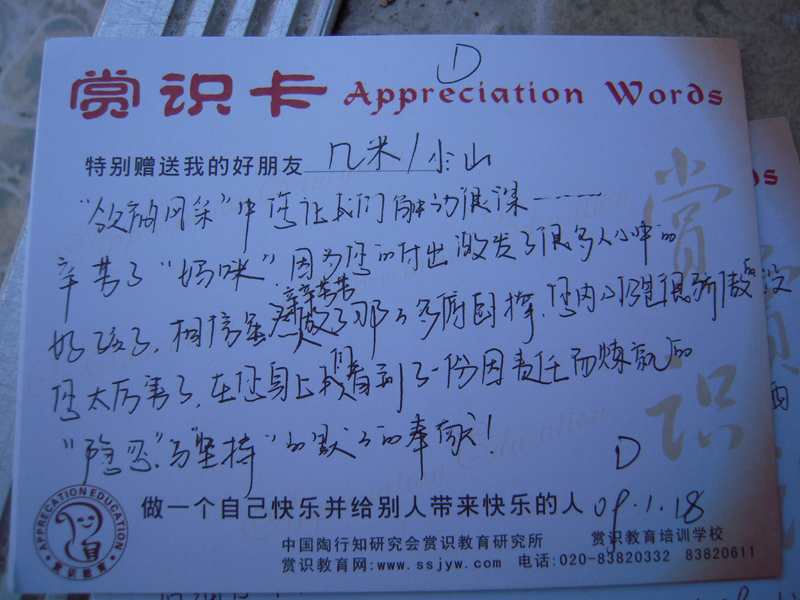 D
赏识卡 Appreciation Words
特别赠送我的好朋友 几米/小山
中您让我们触动很深------
辛苦了"妈咪",因为您的付出激发了很多人心中的
好孩子,相信虽然 辛辛苦苦 做了那么多 您内心还是很骄傲的 没
您太厉害了,在您身上我们看到了一份因责任而炼就的
"隐忍"与"坚持"的默默的奉献!
D
做一个自己快乐并给别人带来快乐的人 09.1.18
中国陶行知研究会赏识教育研究所 赏识教育培训学校
赏识教育网:www.ssjyw.com 电话:020-83820332 83820611
APPRECATION EDUCATION
赏识教育
赏识
ds